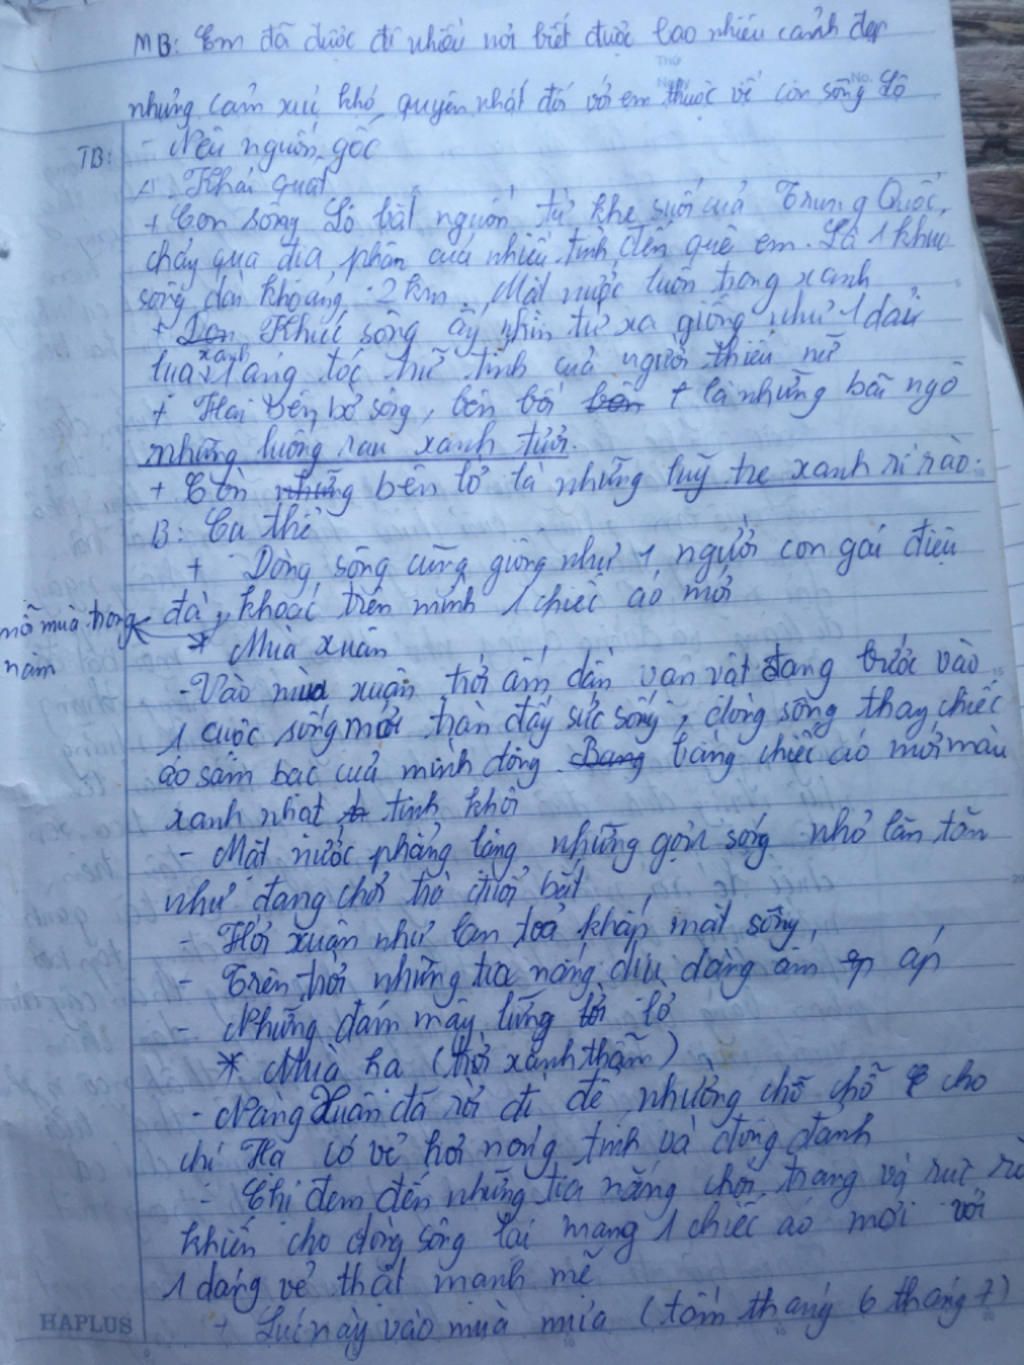 MB: Em đã được đi nhiều nơi biết được bao nhiêu cảnh đẹp
Thứ
Ngày No.
nhưng cảm xúc khó quyên nhất đối với em thuộc về con sông Lô
TB: - Nêu nguồn gốc
A. Khái quát
+ Con sông Lô bắt nguồn từ khe suối của Trung Quốc,
chảy qua địa phận của nhiều tỉnh đến quê em. Là 1 khúc
sông dài khoảng 2km. Mặt nước luôn trong xanh
+ Don Khúc sông ấy nhìn từ xa giống như 1 dải
lụa xanh, áng tóc trữ tình của người thiếu nữ
+ Hai bên bờ sông, bên bồi bên + là những bãi ngô
những luống rau xanh tươi.
+ Còn những bên lở là những luỹ tre xanh rì rào.
B: Cụ thể
+ Dòng sông cũng giống như 1 người con gái điệu
đà, khoác trên mình 1 chiếc áo mới
mỗi mùa trong
năm
* Mùa xuân
- Vào mùa xuân trời ấm dần vạn vật đang bước vào
1 cuộc sống mới tràn đầy sức sống, dòng sông thay chiếc
áo sẫm bạc của mình đông Bang bằng chiếc áo mới màu
xanh nhạt tinh khôi
- Mặt nước phẳng lặng những gợn sóng nhỏ lăn tăn
như đang chơi trò đuổi bắt
- Hơi xuân như lan toả khắp mặt sông,
- Trên trời những tia nắng dịu dàng ấm áp
- Những đám mây lững lờ
* Mùa hạ (trời xanh thẳm)
- Nàng Xuân đã rời đi để nhường chỗ chỗ cho
chị Hạ có vẻ hơi nóng tính và đỏng đảnh
- Chị đem đến những tia nắng chói trang và rực rỡ
khiến cho dòng sông lại mang 1 chiếc áo mới với
1 dáng vẻ thật mạnh mẽ
+ Lúc này vào mùa mưa (tầm tháng 6 tháng 7)
HAPLUS